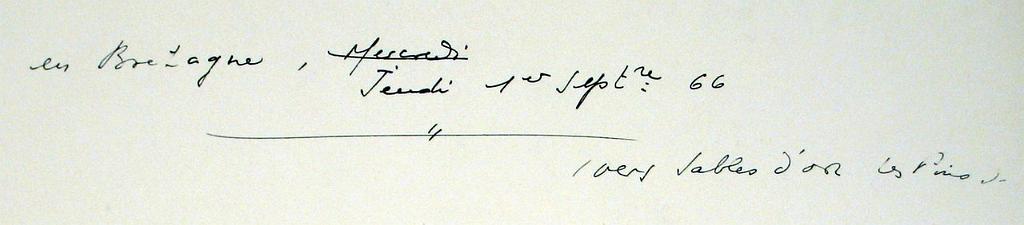 en Bretagne, Mercredi
Jeudi 1er Septre 66
"
(vers Sables d'or les Pins).